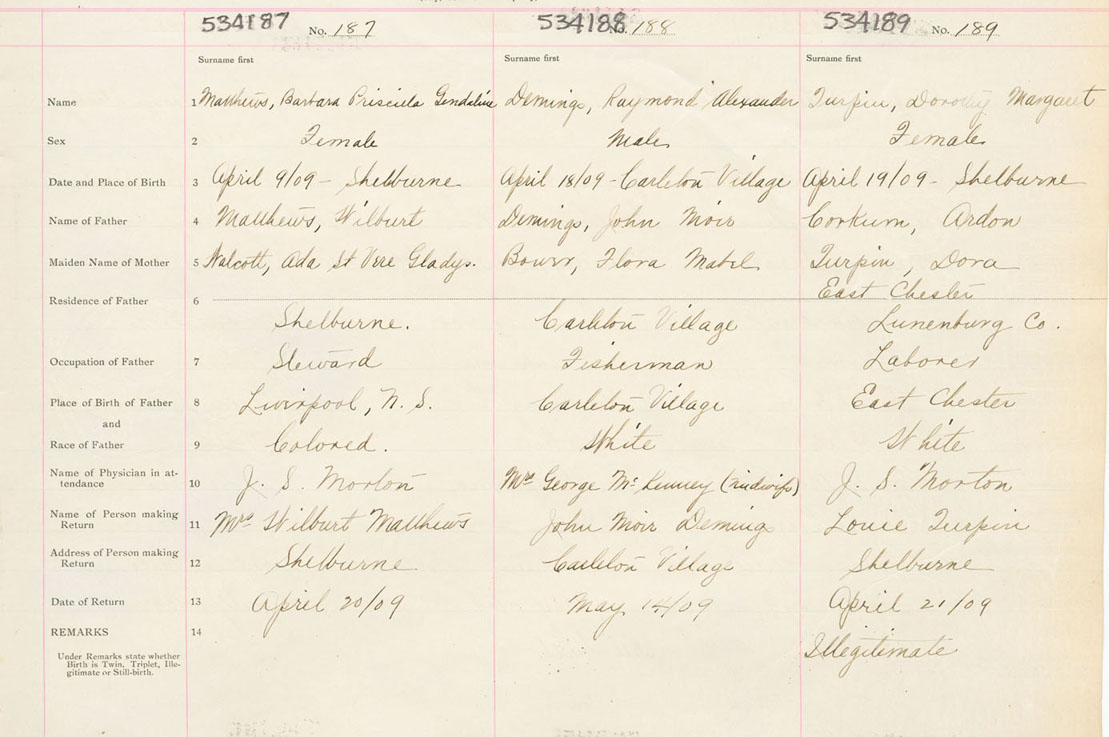 534187 No. 187 534188 No. 188 534189 No. 189
Surname first Surname first Surname first
Name 1 Matthews, Barbara Priscilla Demings, Raymond Alexander Turpin, Dorothy Margaret
Sex 2 Female Male Female
Date and Place of Birth 3 April 9/09 - Shelburne April 18/09 - Carleton Village April 19/09 - Shelburne
Name of Father 4 Matthews, Wilburt Demings, John Moir Corkum, Ardon
Maiden Name of Mother 5 Walcott, Ada St Vere Gladys. Flora Mabel Turpin, Dora
East Chester
Residence of Father 6
Shelburne. Carleton Village Lunenburg Co.
Occupation of Father 7 Steward Fisherman Laborer
Place of Birth of Father 8 Liverpool, N.S. Carleton Village East Chester
and
Race of Father 9 Colored. White White
Name of Physician in at-
tendance 10 J. S. Morton Mrs George Mc Kenney (midwife) J. S. Morton
Name of Person making
Return 11 Mrs Wilburt Matthews John Moir Demings Louie Turpin
Address of Person making
Return 12 Shelburne Carleton Village Shelburne
Date of Return 13 April 20/09 May 14/09 April 21/09
REMARKS 14
Illegitimate
Under Remarks state whether
Birth is Twin, Triplet, Ille-
gitimate or Still-birth.